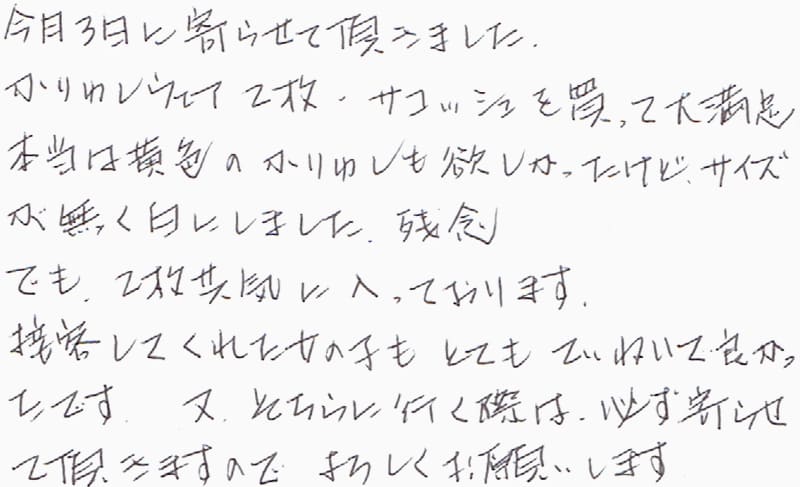 今月3日に寄らせて頂きました.
かりゆしウェア2枚・サコッシュを買って大満足
本当は黄色のかりゆしも欲しかったけど、サイズ
が無く白にしました. 残念
でも、2枚共気に入っております.
接客してくれた女の子もとてもていねいで良かっ
たです. 又、そちらに行く際は、必ず寄らせ
て頂きますのでよろしくお願いします